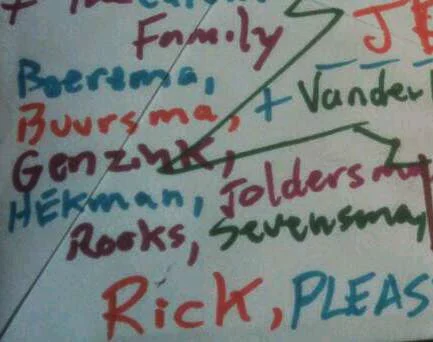 Family
Boersma,
Buursma, + Vander
Genzink,
HEkman, Joldersma
Rooks, Sevensma,
Rick, PLEAS